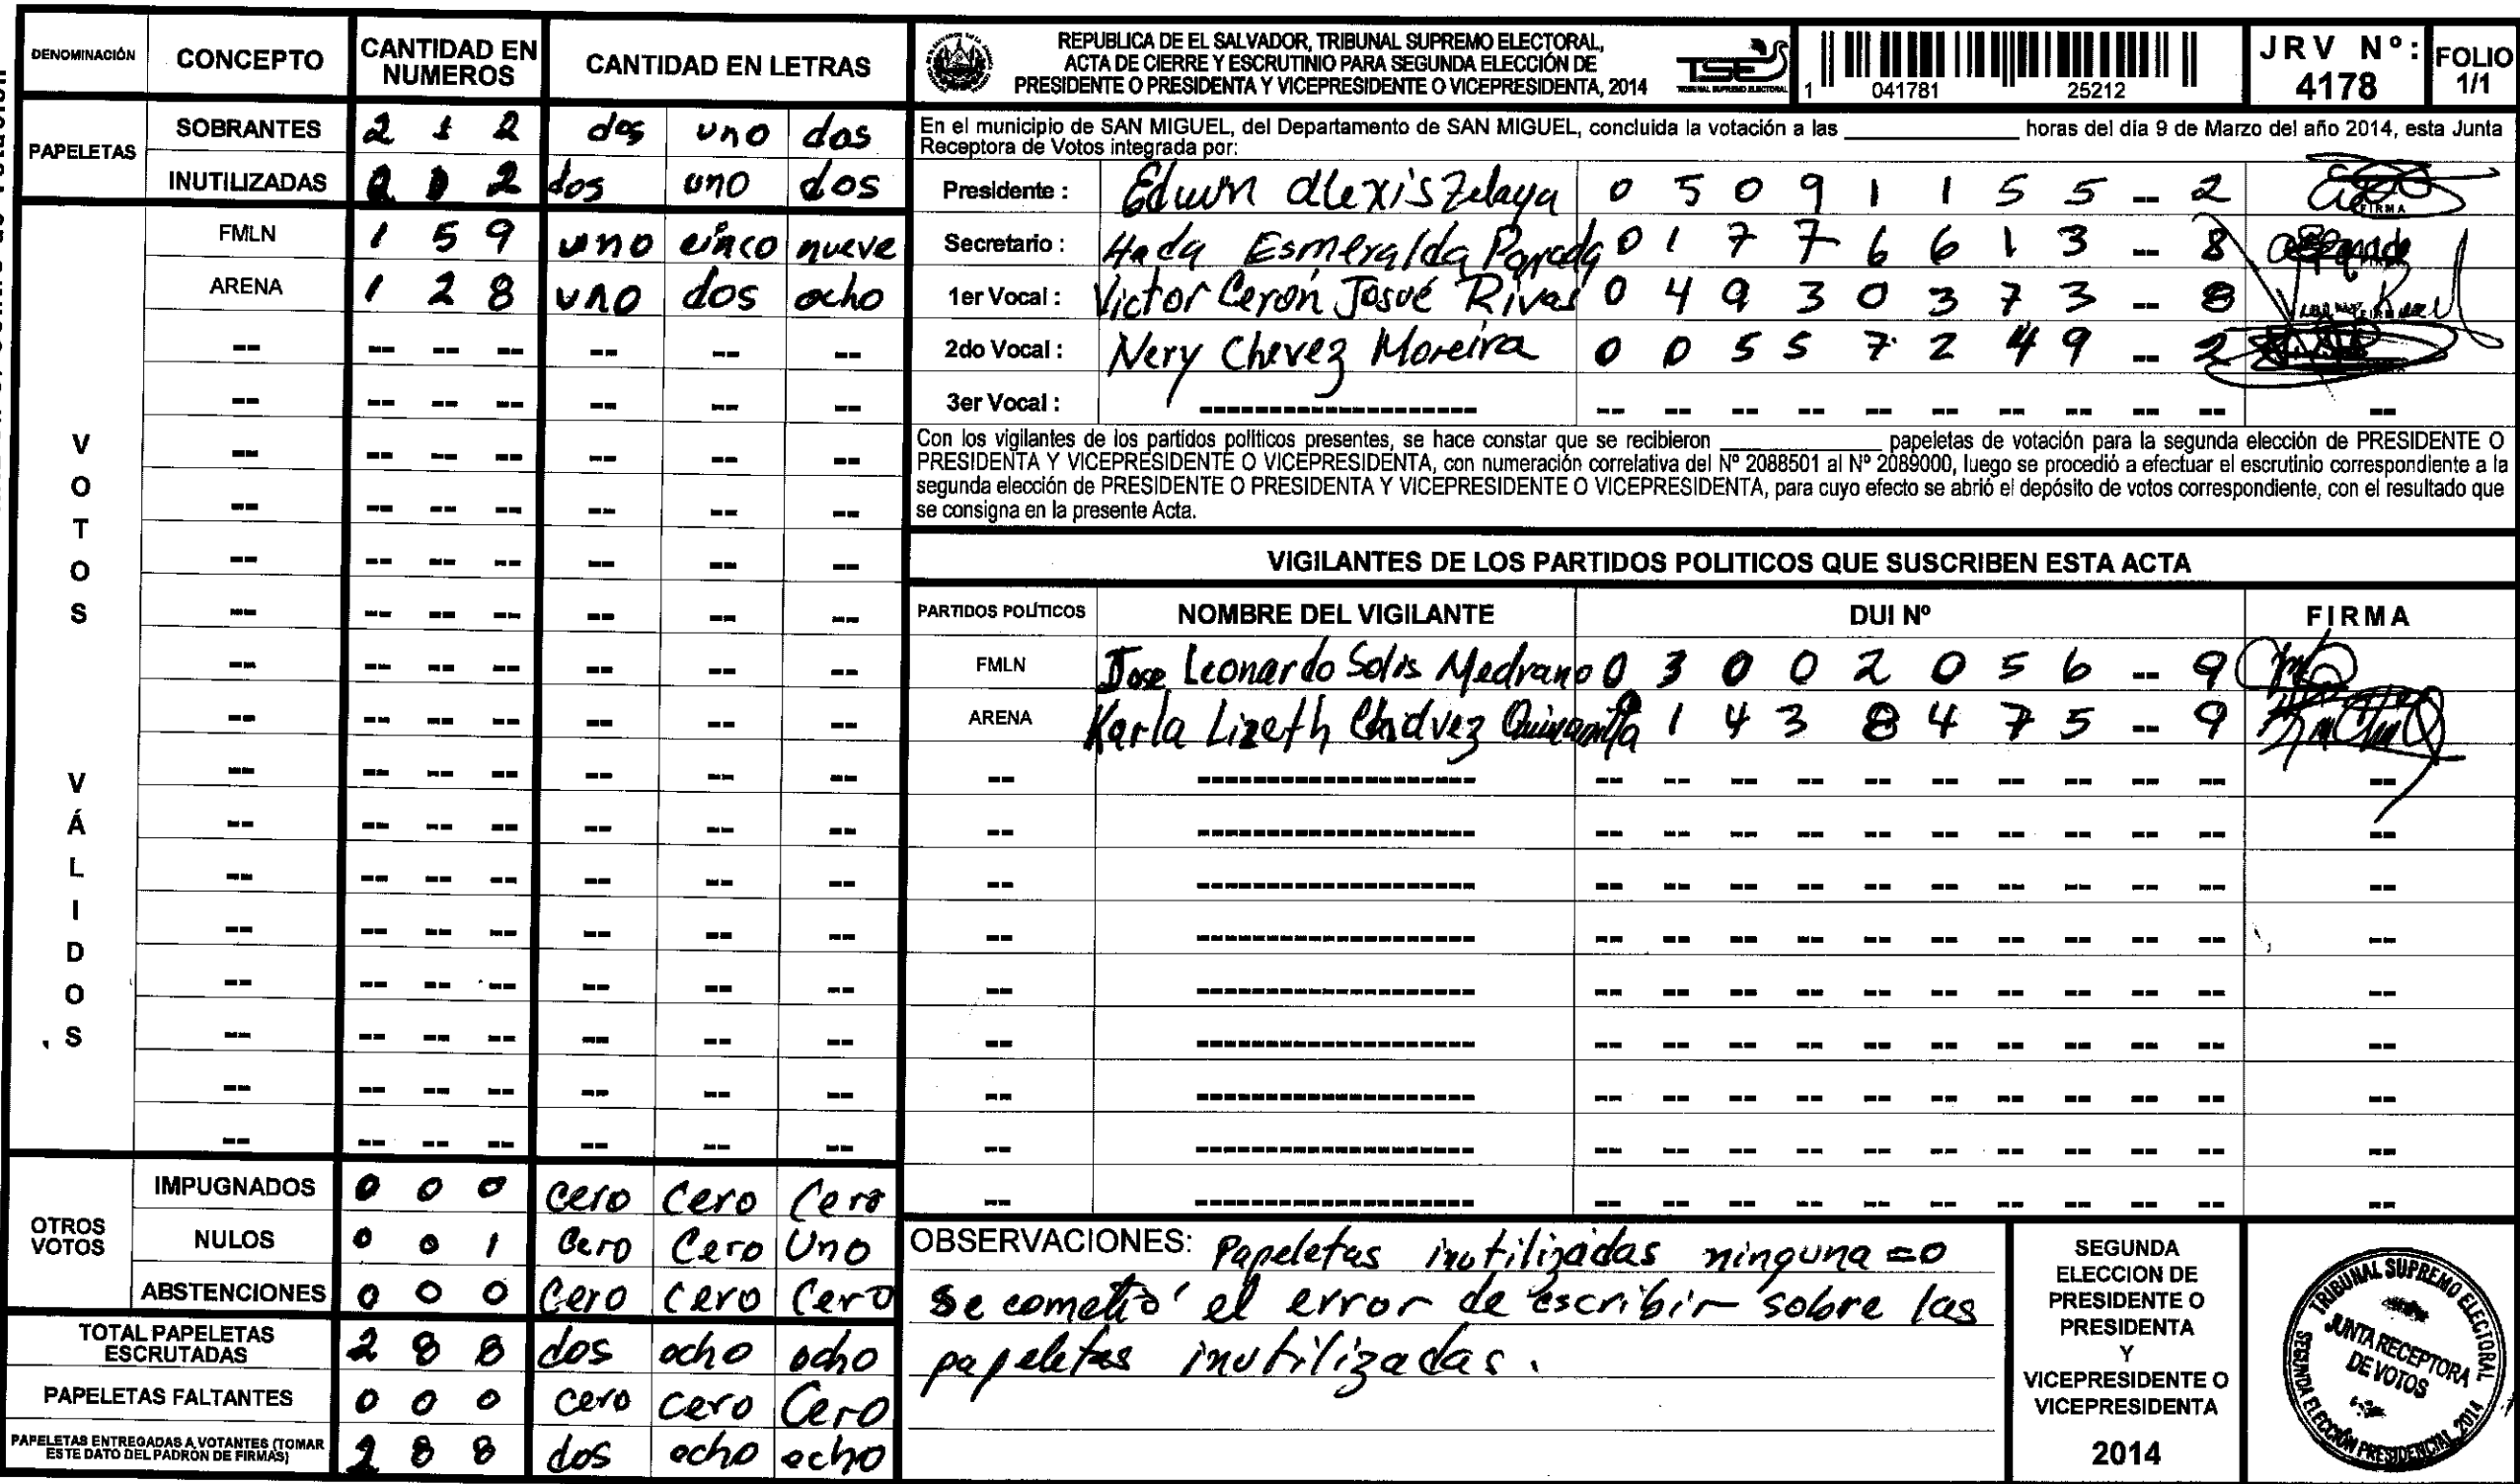 DENOMINACIÓN CONCEPTO CANTIDAD EN NUMEROS CANTIDAD EN LETRAS
PAPELETAS
SOBRANTES 2 1 2 dos uno dos
INUTILIZADAS 2 1 2 dos uno dos
VOTOS VÁLIDOS
FMLN 1 5 9 uno cinco nueve
ARENA 1 2 8 uno dos ocho
OTROS VOTOS
IMPUGNADOS 0 0 0 cero cero cero
NULOS 0 0 1 Cero Cero Uno
ABSTENCIONES 0 0 0 Cero cero Cero
TOTAL PAPELETAS ESCRUTADAS 2 8 8 dos ocho ocho
PAPELETAS FALTANTES 0 0 0 cero cero Cero
PAPELETAS ENTREGADAS A VOTANTES (TOMAR ESTE DATO DEL PADRÓN DE FIRMAS) 2 8 8 dos ocho ocho
REPUBLICA DE EL SALVADOR, TRIBUNAL SUPREMO ELECTORAL,
ACTA DE CIERRE Y ESCRUTINIO PARA SEGUNDA ELECCIÓN DE
PRESIDENTE O PRESIDENTA Y VICEPRESIDENTE O VICEPRESIDENTA, 2014
TSE
TRIBUNAL SUPREMO ELECTORAL
1 041781 25212
JRV Nº: 4178
FOLIO 1/1
En el municipio de SAN MIGUEL, del Departamento de SAN MIGUEL, concluida la votación a las ____ horas del día 9 de Marzo del año 2014, esta Junta
Receptora de Votos integrada por:
Presidente : Edwin Alexis Zelaya 0 5 0 9 1 1 5 5 -- 2 FIRMA
Secretario : Hada Esmeralda Parada 0 1 7 7 6 6 1 3 -- 8
1er Vocal : Victor Cerón Josué Rivas 0 4 9 3 0 3 7 3 -- 8
2do Vocal : Nery Chevez Moreira 0 0 5 5 7 2 4 9 -- 2
3er Vocal :
Con los vigilantes de los partidos politicos presentes, se hace constar que se recibieron ____ papeletas de votación para la segunda elección de PRESIDENTE O
PRESIDENTA Y VICEPRESIDENTE O VICEPRESIDENTA, con numeración correlativa del Nº 2088501 al Nº 2089000, luego se procedió a efectuar el escrutinio correspondiente a la
segunda elección de PRESIDENTE O PRESIDENTA Y VICEPRESIDENTE O VICEPRESIDENTA, para cuyo efecto se abrió el depósito de votos correspondiente, con el resultado que
se consigna en la presente Acta.
VIGILANTES DE LOS PARTIDOS POLITICOS QUE SUSCRIBEN ESTA ACTA
PARTIDOS POLÍTICOS NOMBRE DEL VIGILANTE DUI Nº FIRMA
FMLN Jose Leonardo Solis Medrano 0 3 0 0 2 0 5 6 -- 9
ARENA Karla Lizeth Chávez Quintanilla 0 1 4 3 8 4 7 5 -- 9
OBSERVACIONES: Papeletas inutilizadas ninguna =0
Se cometió el error de escribir sobre las
papeletas inutilizadas.
SEGUNDA
ELECCION DE
PRESIDENTE O
PRESIDENTA
Y
VICEPRESIDENTE O
VICEPRESIDENTA
2014
TRIBUNAL SUPREMO ELECTORAL
JUNTA RECEPTORA
DE VOTOS
SEGUNDA ELECCIÓN PRESIDENCIAL 2014